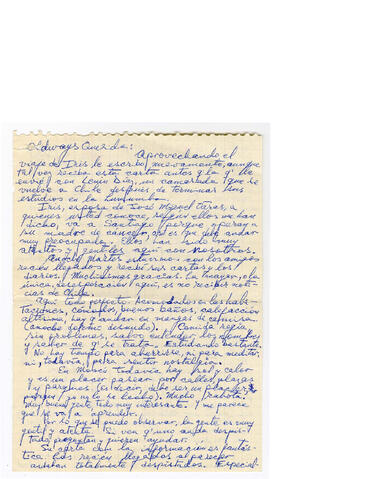 Always Querida:
Aprovechando el
viaje de Iris le escribo nuevamente, aunque
tal vez reciba esta carta antes y la q' le
envié con Lenin Díaz, un camarada que se
vuelve a Chile después de terminar sus
estudios en la Lumumba.
Iris, esposa de José Miguel Varas, a
quienes usted conoce, según ellos me han
dicho, va a Santiago porque operan a
su madre de cáncer, así es que debe andar
muy preocupada. Ellos han sido muy
atentos y gentiles aquí con nosotros.
Martes estuvimos con los
recién llegados y recibí sus cartas y los
diarios. Muchísimas gracias. la
única desesperación aquí, es no recibir noti-
cias de Chile.
Aquí todo perfecto. Acomodado en las habi-
taciones, cómodas, buenos baños, calefacción
altísima, hay q' andar en mangas de camisa
(anoche dormí desnudo). Comida regia,
sin problemas, sabor
y saber de q' se trata. Estudiando bastante.
No hay tiempo para aburrirse, ni para meditar,
ni, todavía, para sentir nostalgia.
En Moscú todavía hay frío y calor
y es un placer pasear por calles, plazas
y parques (es decir, debe ser un placer,
porque yo no lo he hecho). Mucho trabajo.
Muy buena gente, todo muy interesante. Y me parece
que se va a aprender.
Por lo que se puede observar, la gente es muy
gentil y atenta. Si ven q' uno anda
todos preguntan y quieren ayudar.
Su carta con la información es fantás-
tica. Los recién llegados al parecer
andan totalmente despistados. Especial-